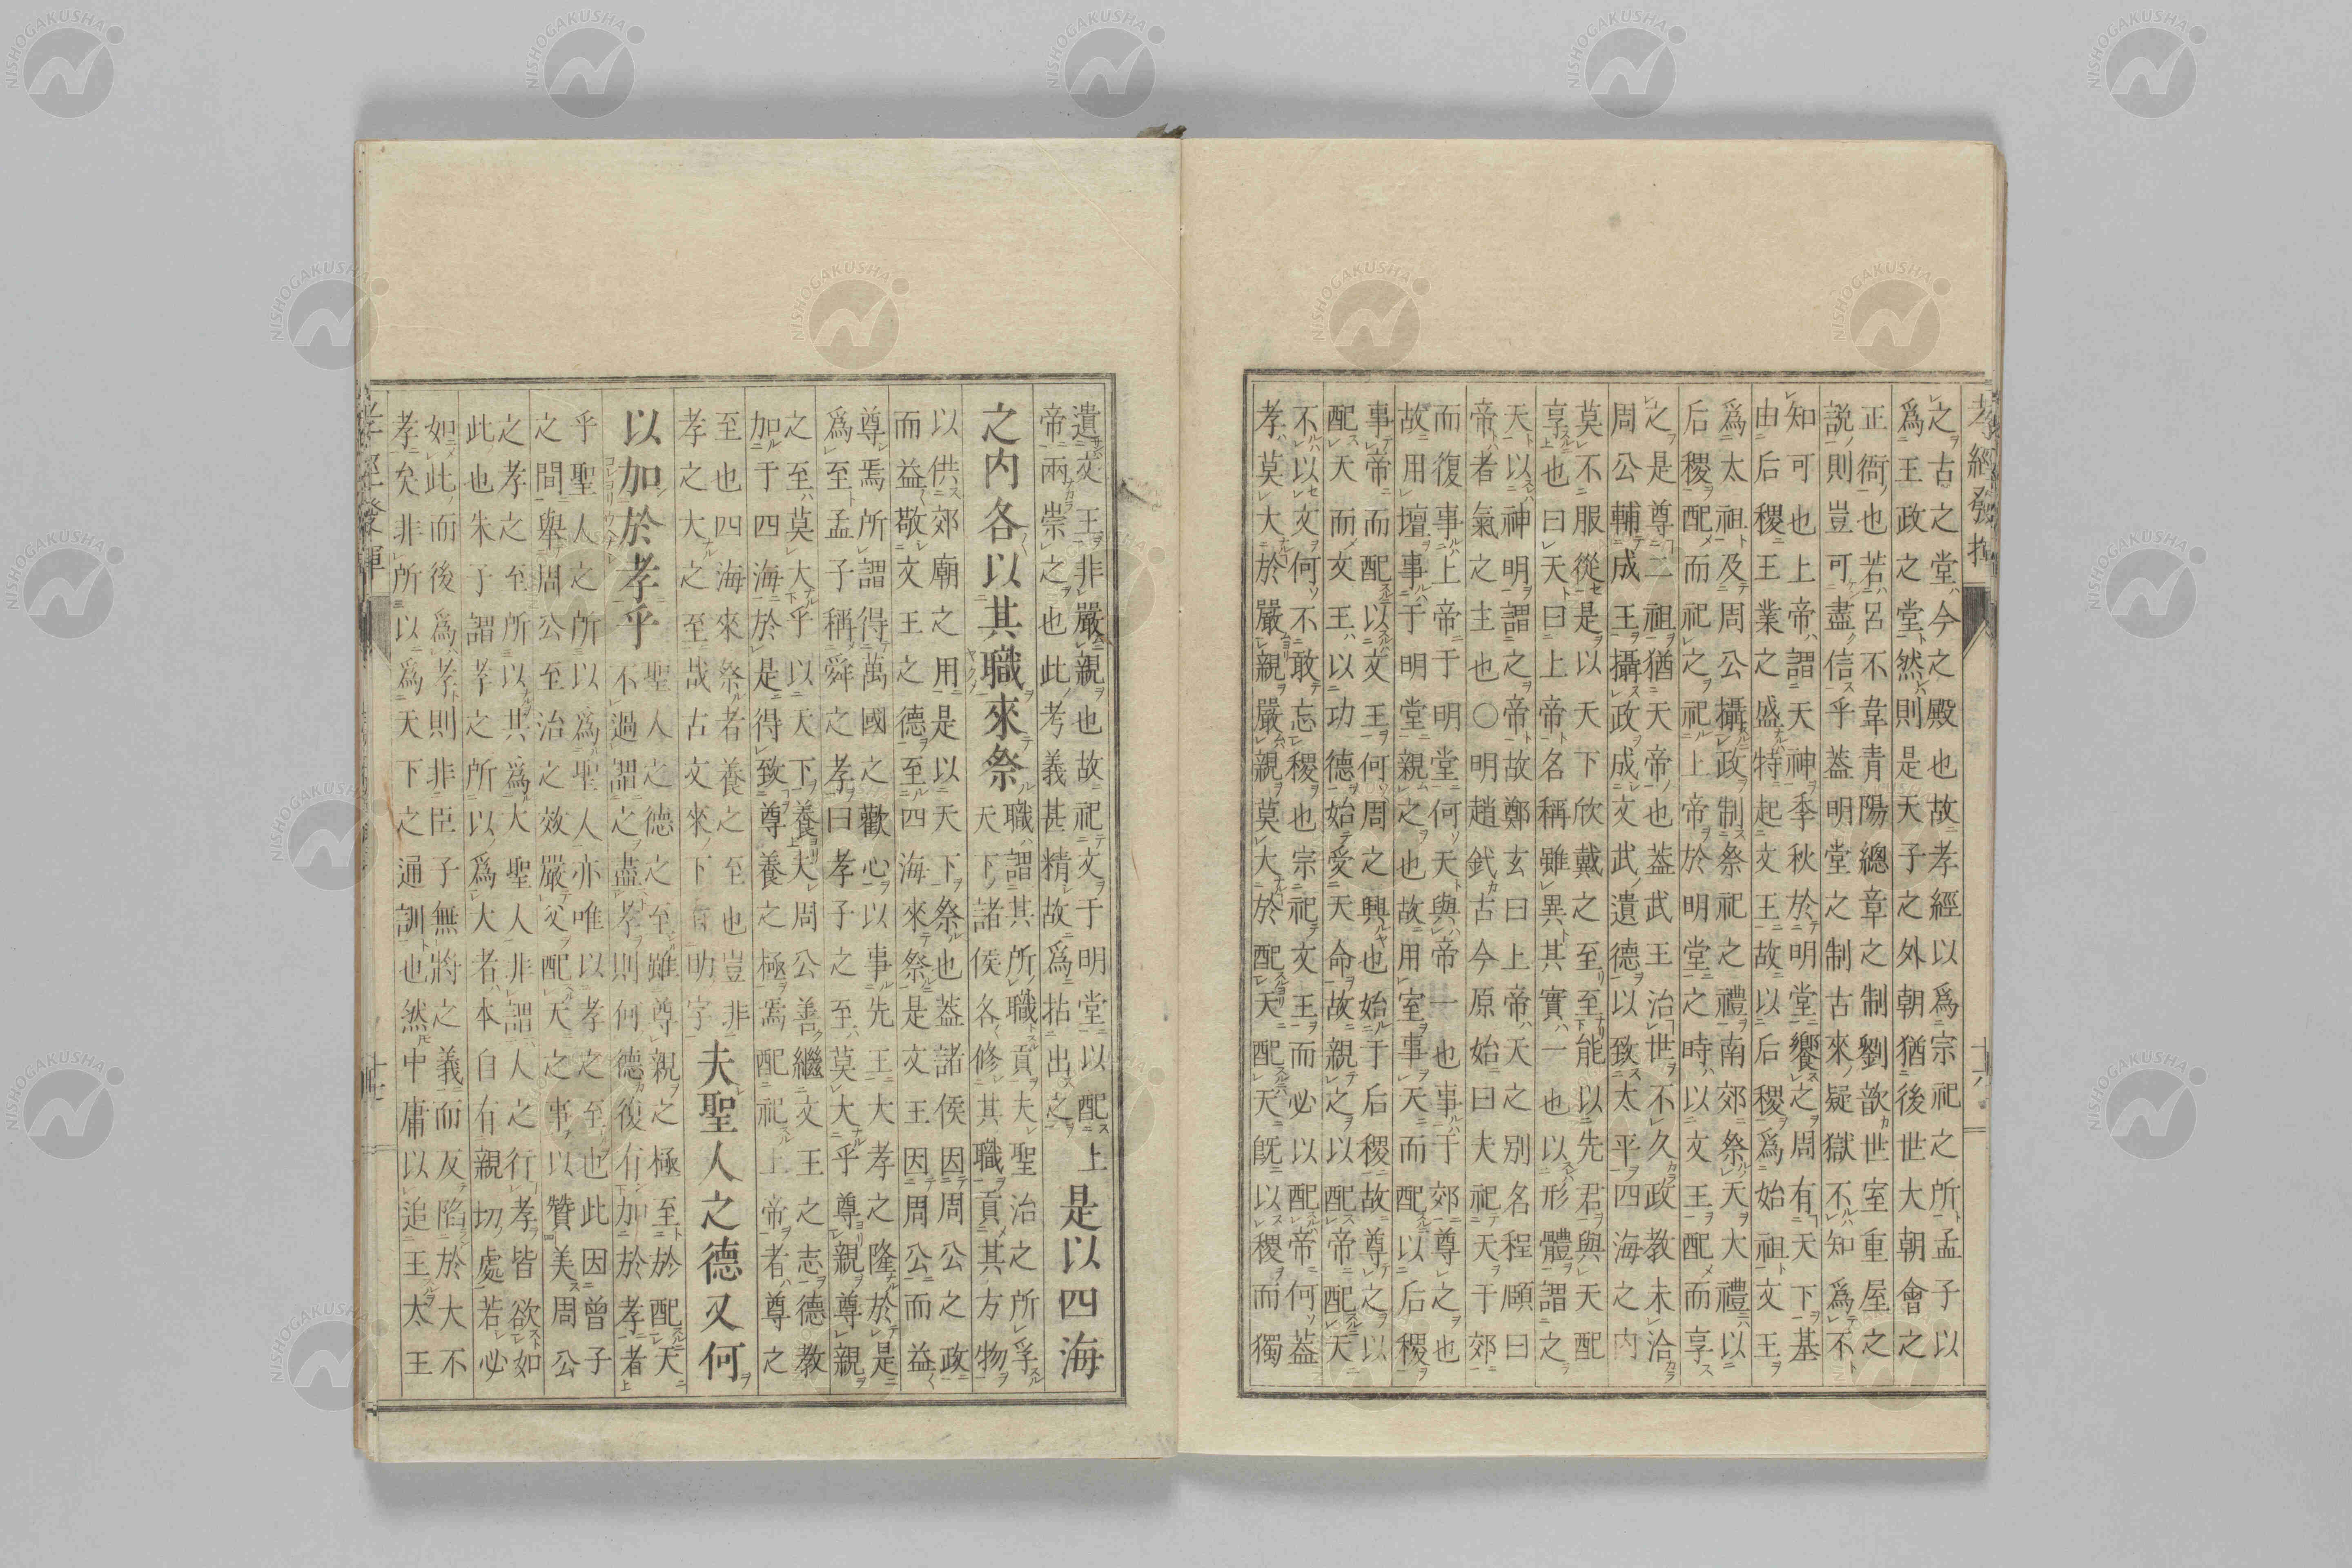 孝經發揮
十六
之古之堂今之殿也故孝經以爲宗祀之所孟子以
爲王政之堂然則是天子之外朝猶後世大朝會之
正衙也若呂不韋青陽總章之制劉歆世室重屋之
説則豈可盡信乎蓋明堂之制古來疑獄不知爲不
知可也上帝謂天神季秋於明堂饗之周有天下基
由后稷王業之盛特起文王故以后稷爲始祖文王
爲太祖及周公攝政制祭祀之禮南郊祭天大禮以
后稷配而祀之祀上帝於明堂之時以文王配而享
之是尊二祖猶天帝也蓋武王治世不久政教未洽
周公輔成王攝政成文武遺德以致太平四海之内
莫不服從是以天下欣戴之至至能以先君與天配
享也曰天曰上帝名稱雖異其實一也以形體謂之
天以神明謂之帝故鄭玄曰上帝天之別名程頤曰
帝者氣之主也〇明趙釴古今原始曰夫祀天于郊
而復事上帝于明堂何天與帝一也事于郊尊之也
故用壇事于明堂親之也故用室事天而配以后稷
事帝而配以文王何周之興也始于后稷故尊之以
配天而文王以功德始愛天命故親之以配帝配天
不以文何不敢忘稷也宗祀文王而必以配帝何蓋
孝莫大於嚴親嚴親莫大於配天配天既以稷而獨
遺文王非嚴親也故祀文于明堂以配上
帝兩崇之也此考義甚精故爲拈出之
是以四海
之内各以其職來祭
職謂其所職貢夫聖治之所孚
天下諸侯各修其職貢其方物
以供郊廟之用是以天下祭也蓋諸侯因周公之政
而益敬文王之德至四海來祭是文王因周公而益
尊焉所謂得萬國之歡心以事先王大孝之隆於是
爲至孟子稱舜之孝曰孝子之至莫大乎尊親尊親
之至莫大乎以天下養大周公善繼文王之志德教
加于四海於是得致尊養之極焉配祀上帝者尊之
至也四海來祭者養之至也豈非
孝之大之至哉古文來下有助字
夫聖人之德又何
以加於孝乎
聖人之德之至雖尊親之極至於配天
不過謂之盡孝則何德復有加於孝者
乎聖人之所以爲聖人亦唯以孝之至也此因曾子
之間舉周公至治之效嚴父配天之事以贊美周公
之孝之至所以其爲大聖人非謂人之行孝皆欲如
此也朱子謂孝之所以爲大者本自有親切處若必
如此而後爲孝則非臣子無將之義而反陷於大不
孝矣非所以爲天下之通訓也然中庸以追王太王
孝經發揮
十七